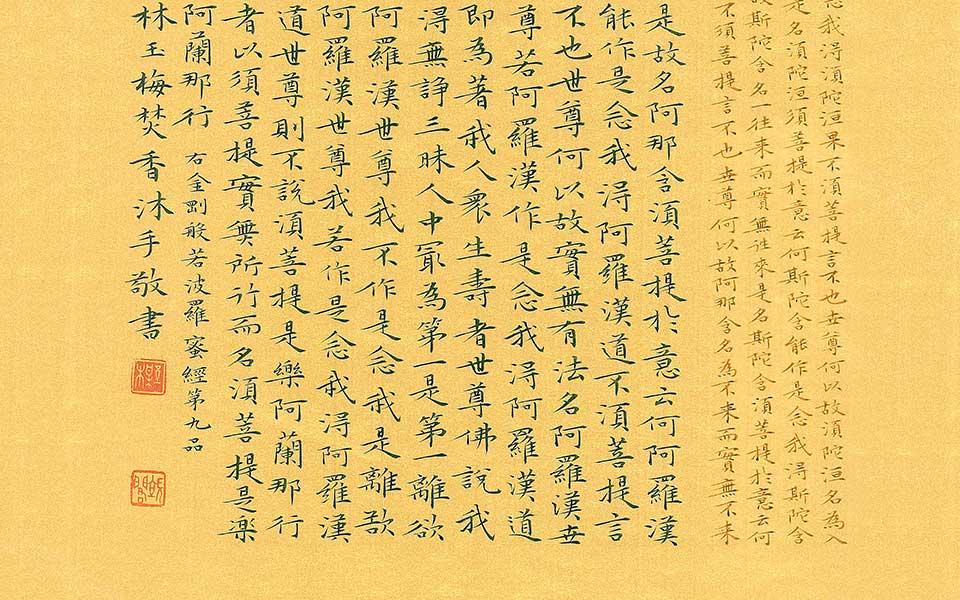 念我得須陀洹果不須菩提言不也世尊何以故須陀洹名為入
是名須陀洹須菩提於意云何斯陀含能作是念我得斯陀含
故斯陀含名一往来而實無往来是名斯陀含須菩提於意云何
不須菩提言不也世尊何以故阿那含名為不来而實無不来
是故名阿那含須菩提於意云何阿羅漢
能作是念我得阿羅漢道不須菩提言
不也世尊何以故實無有法名阿羅漢世
尊若阿羅漢作是念我得阿羅漢道
即為著我人衆生壽者世尊佛說我
得無諍三昧人中冣為第一是第一離欲
阿羅漢世尊我不作是念我是離欲
阿羅漢世尊我若作是念我得阿羅漢
道世尊則不說須菩提是樂阿蘭那行
者以須菩提實無所行而名須菩提是楽
阿蘭那行 右金剛般若波羅蜜經第九品
林玉梅焚香沐手敬書